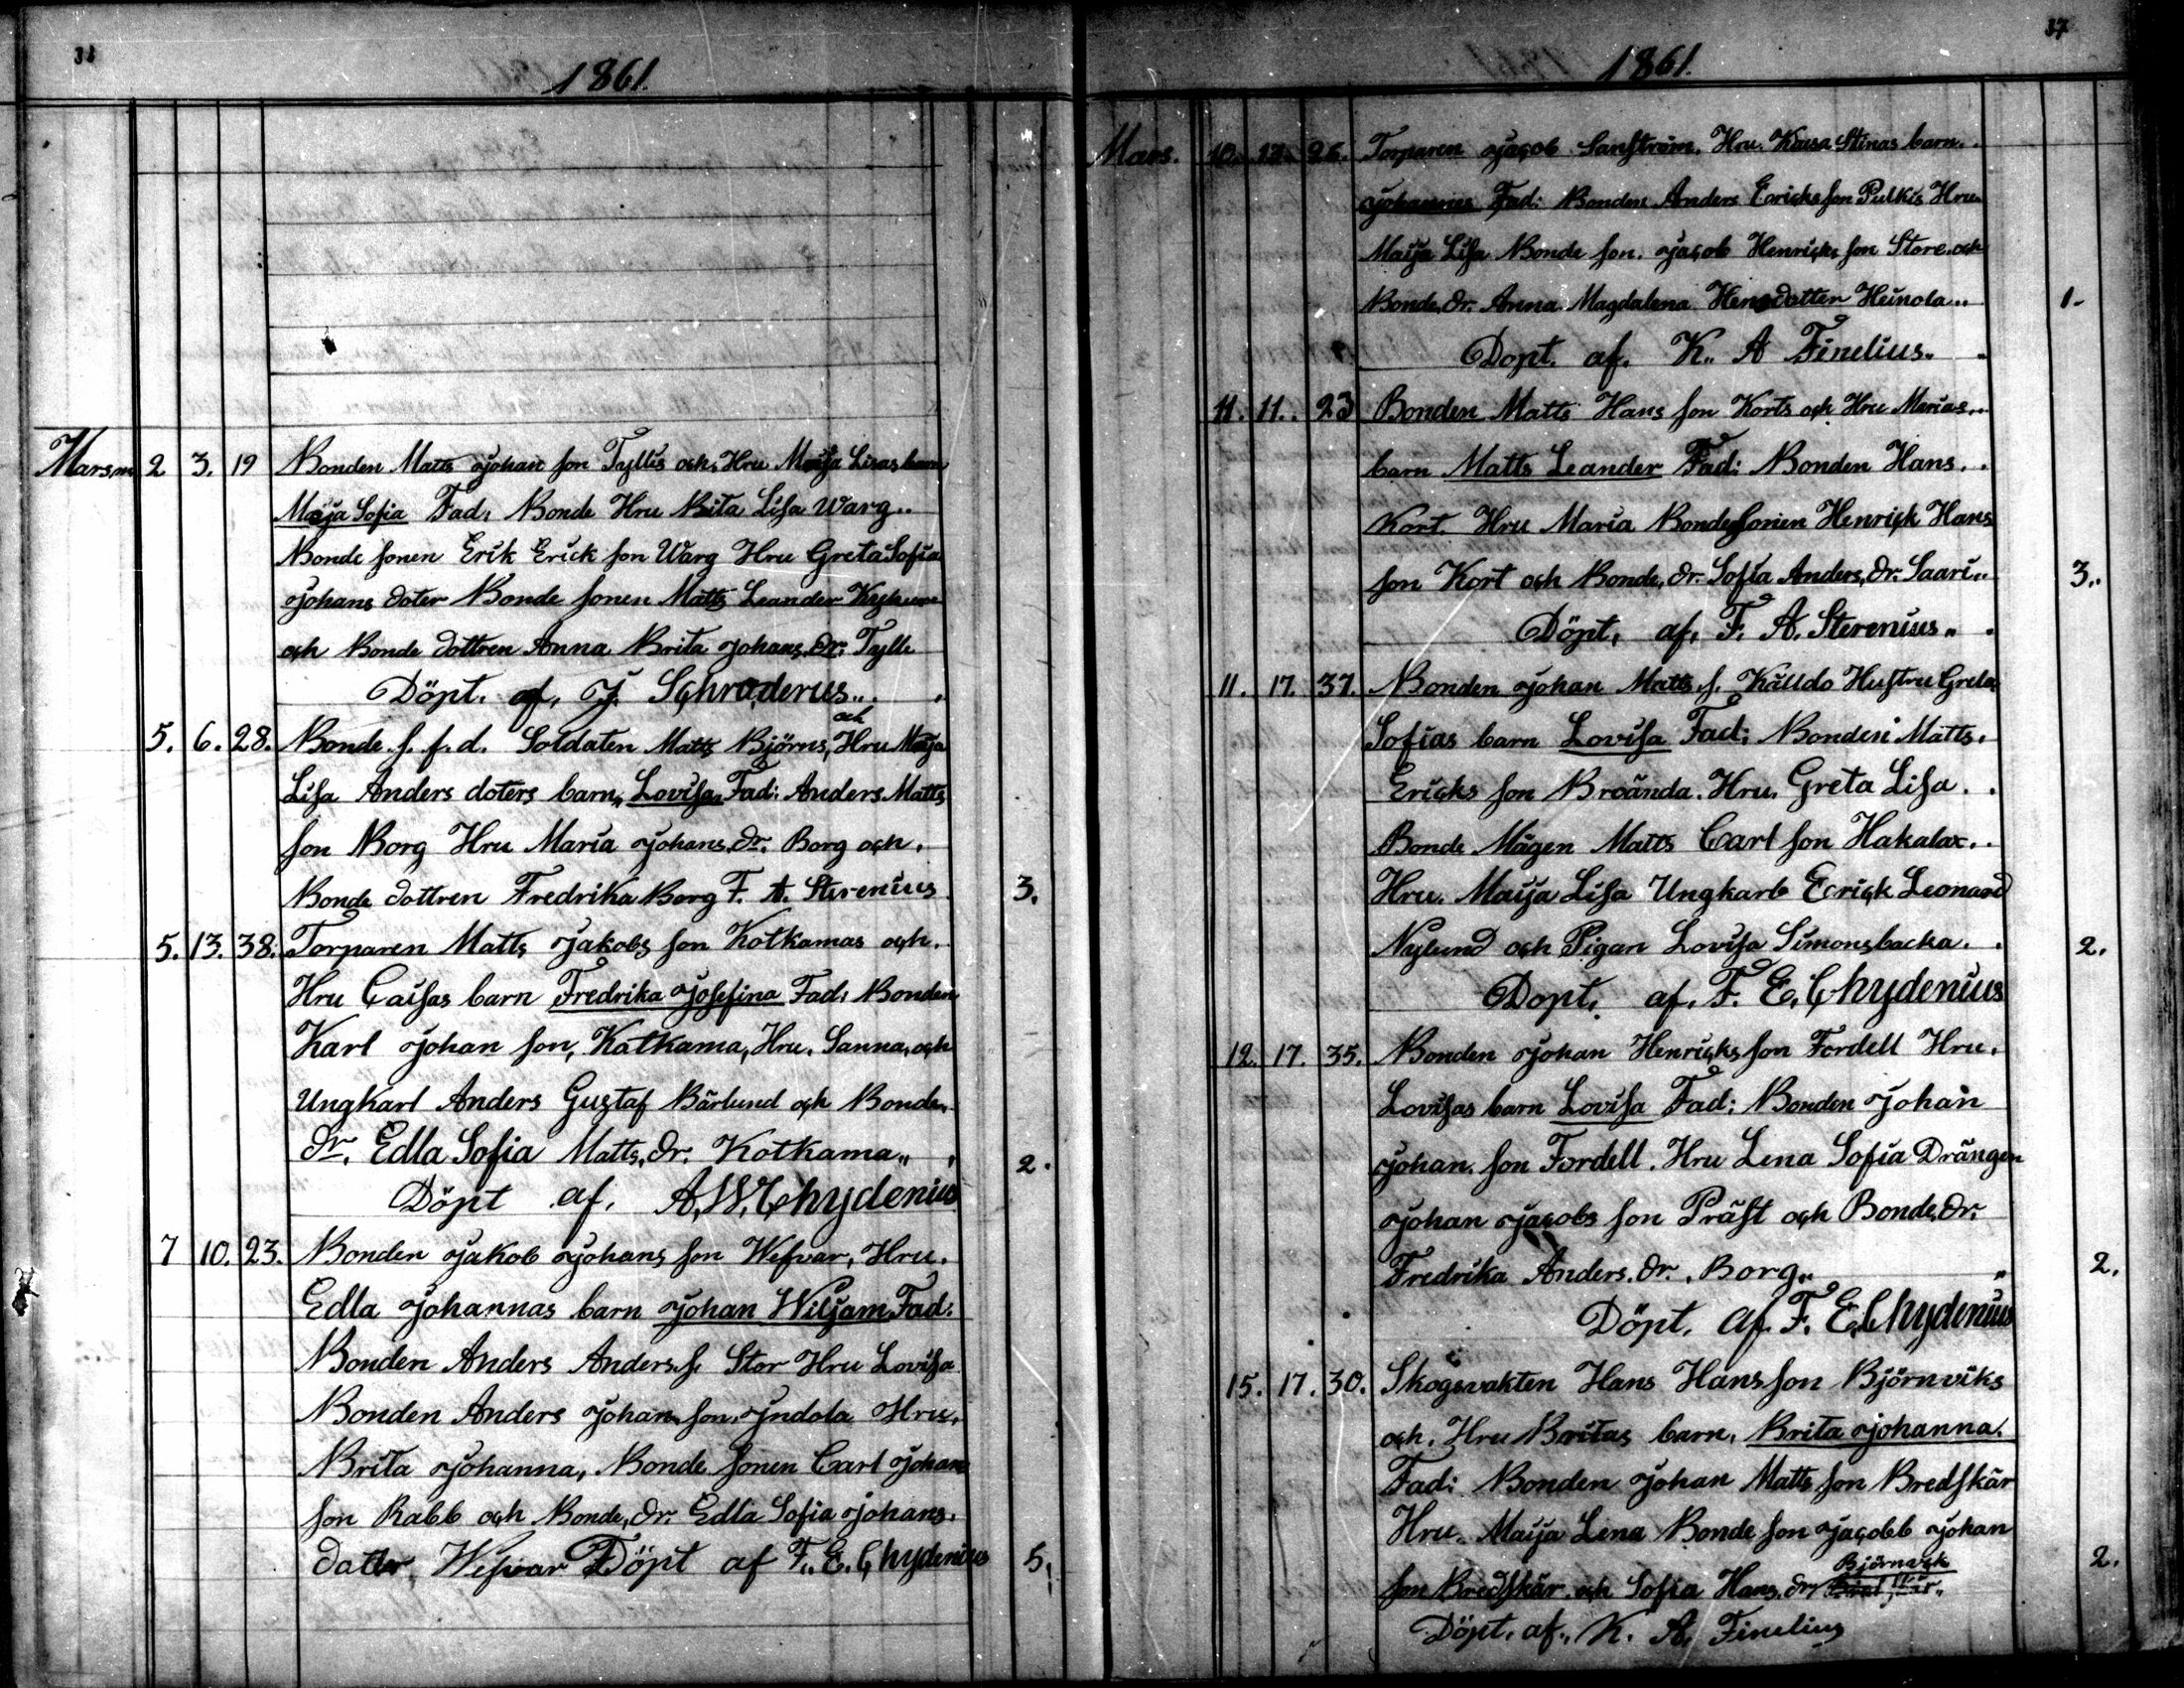 1861.
Marsm 2 3. 19 Bonden Matts Johan son Tyllis och Hru Maja Lisas barn
Maija Sofia Fad. Bonde Hru Brita Lisa Warg..
Bonde sonen Erik Erick son Warg Hru Greta Sofia
Johans doter Bonde sonen Matts Leander
och Bonde dottren Anna Brita Johans. Dr. Tylli
Döpt. af. J. Schroderus..
5. 6. 28. Bonde. s. f. d. Soldaten Matts Björns, och Hru Maja
Lisa Anders doters barn,, Lovisa,, Fad: Anders Matts
son Borg Hru Maria Johans. dr. Borg och.
Bonde dottren Fredrika Borg F. A. Sterenius 3.
5. 13. 38. Torparen Matts Jakobs son Kotkamas och.
Hru Caisas barn Fredrika Josefina Fad: Bonden
Karl Johan son, Katkama, Hru. Sanna, och
Ungkarl Anders Gustaf Bärlund och Bonde,,
dr. Edla Sofia Matts. dr. Kotkama,, 2.
Döpt af. A. W. Chydenius
7 10. 23. Bonden Jakob Johans son Wefvar, Hru.
Edla Johannas barn Johan Wiljam Fad:
Bonden Anders Anders. s. Stor Hru Lovisa
Bonden Anders Johan son. Indola Hru.
Brita Johanna, Bonde sonen Carl Johan
son Rabb och Bonde, dr. Edla Sofia Johans.
datter Wefvar Döpt af F. E. Chydenius 5.
37
1861.
Mars. 10. 12. 26. Torparen Jacob Sanström. Hru. Kaisa Stinas barn.
Johannes Fad: Bonden Anders Ericks son Pulkis Hru
Maija Lisa Bonde son. Jacob Henricks son Store. och
Bonde. dr. Anna Magdalena Hensdatter Heinola.. 1.
Dopt. af. K. A Finelius.
11. 11. 23 Bonden Matts Hans son Korts och Hru Marias..
barn Matts Leander Fad: Bonden Hans.
Kort Hru Maria Bondesonen Henrick Hans
son Kort och Bonde, dr. Sofia Anders, dr. Saari,, 3..
Döpt. af. F. A. Sterenius..
11. 17. 37. Bonden Johan Matts. s. Källdo Hustru Greta
Sofias barn Lovisa Fad: Bonden Matts.
Ericks son Broända. Hru. Greta Lisa.
Bonde Mågen Matts Carl son Hakalax.
Hru. Maija Lisa Ungkarl Erick Leonard
Nylund och Pigan Lovisa Simonsbacka. 2.
Dopt. af. F. E. Chydenius
12. 17. 35. Bonden Johan Henricks son Fordell Hru.
Lovisas barn Lovisa Fad: Bonden Johan
Johan. son Fordell. Hru Lena Sofia Drängen
Johan Jacobs son Präst och Bonde. dr.
Fredrika Anders. dr. Borg.. 2.
Döpt. af. F. E. Chydenius
15. 17. 30. Skogsvakten Hans Hans son Björnviks
och. Hru Britas barn. Brita Johanna.
Fad: Bonden Johan Matts son Bredskär
Hru. Maija Lena Bonde son Jacobb Johan
son Bredskär och Sofia Hans. dr Björnvik 2.
Döpt. af. K. A. Finelius